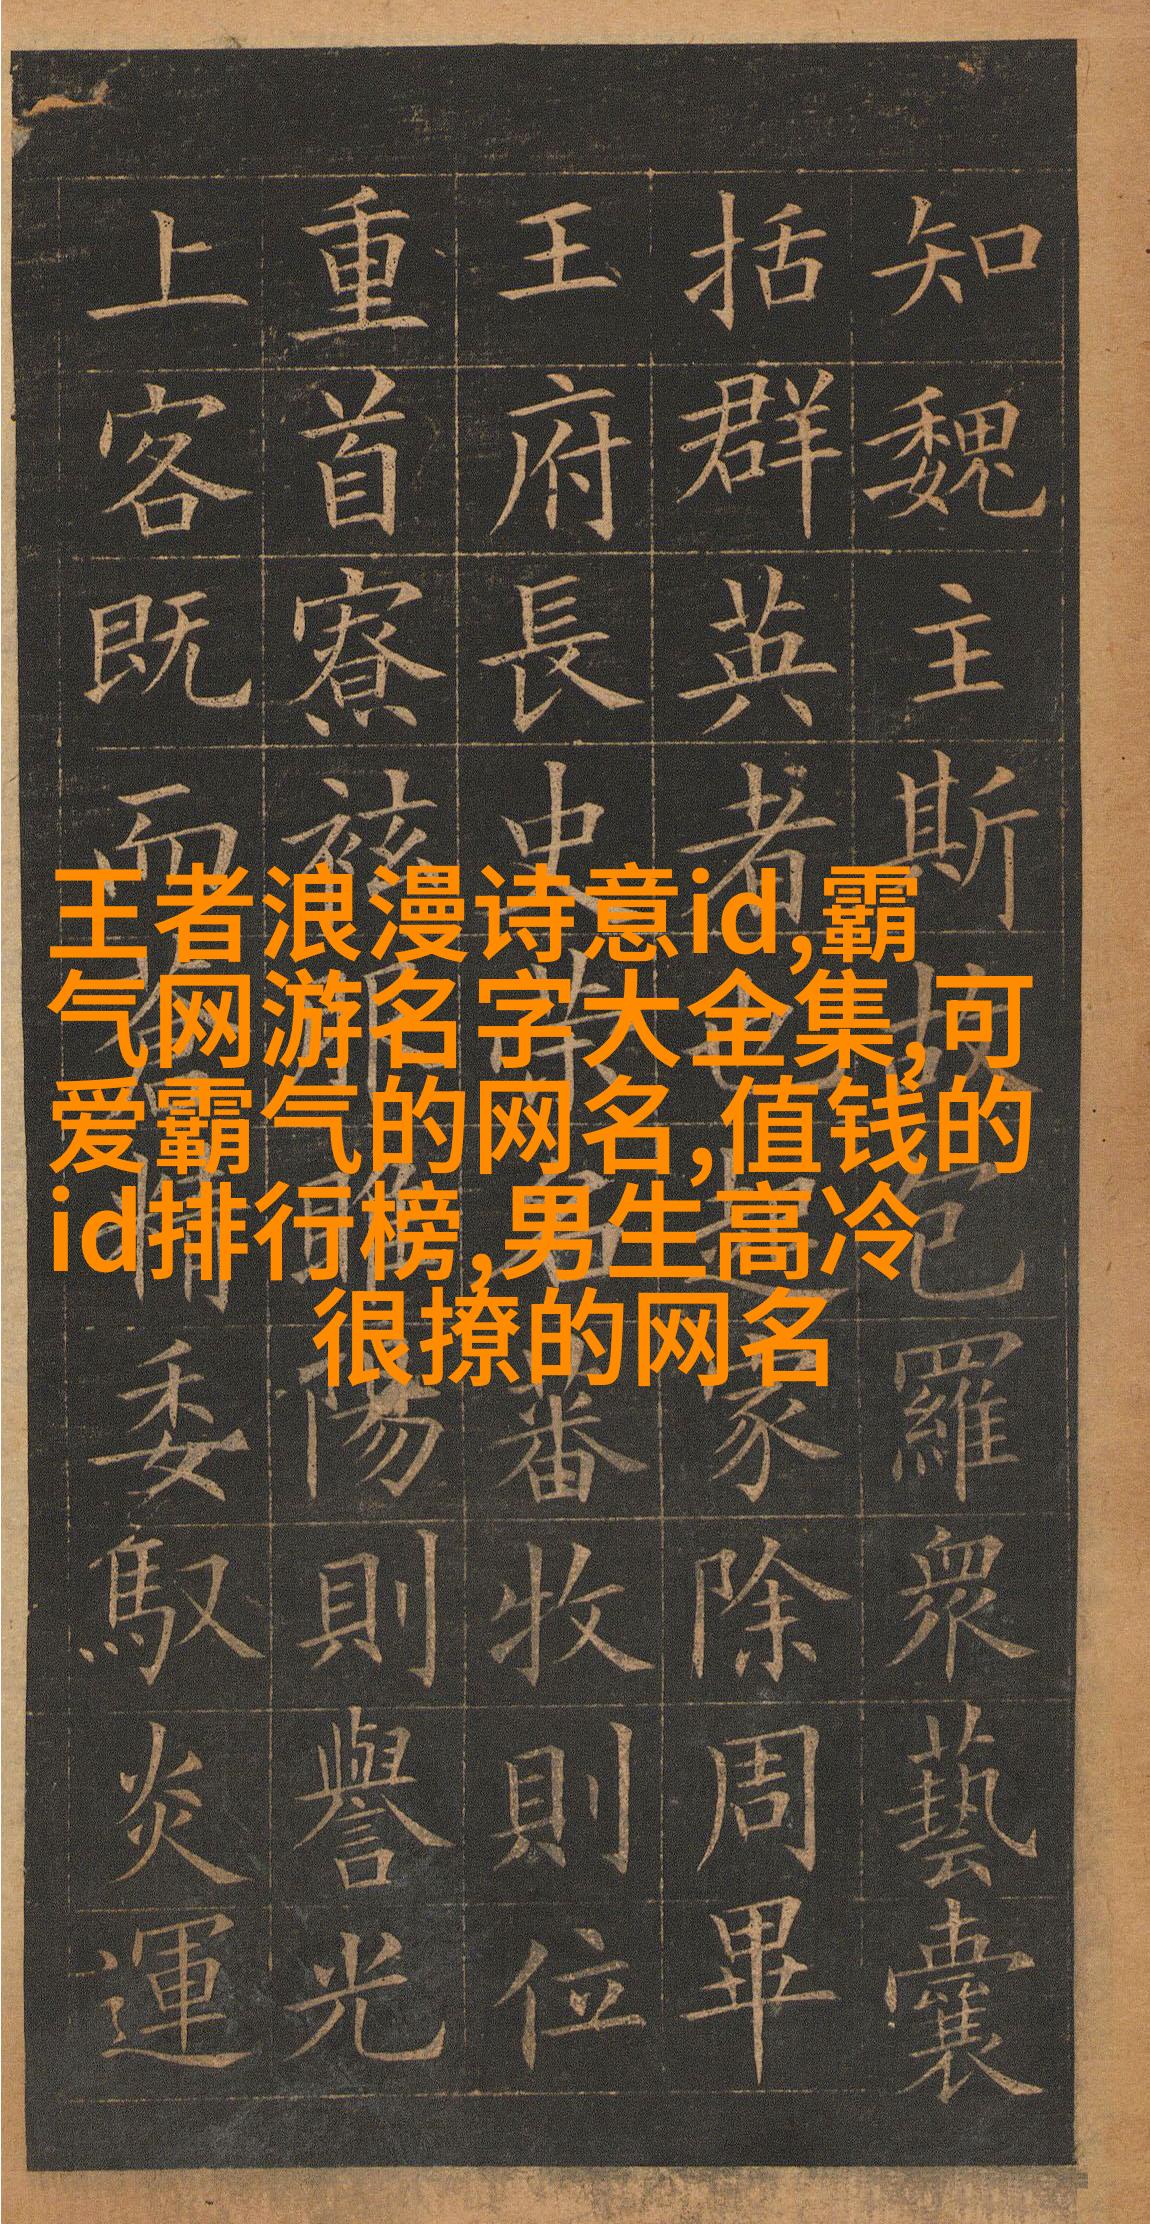 王者浪漫诗意id,霸
气网游名字大全集,可
爱霸气的网名,值钱的
id排行榜,男生高冷
很撩的网名
知魏主斯故羅衆藝囊
括群英者也起家除周畢
王府長史蕃牧則位
重首寮陽則譽光
上客既而委馭炎運